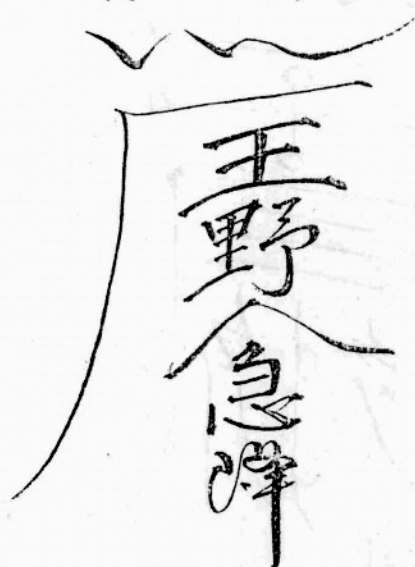 王野
急降